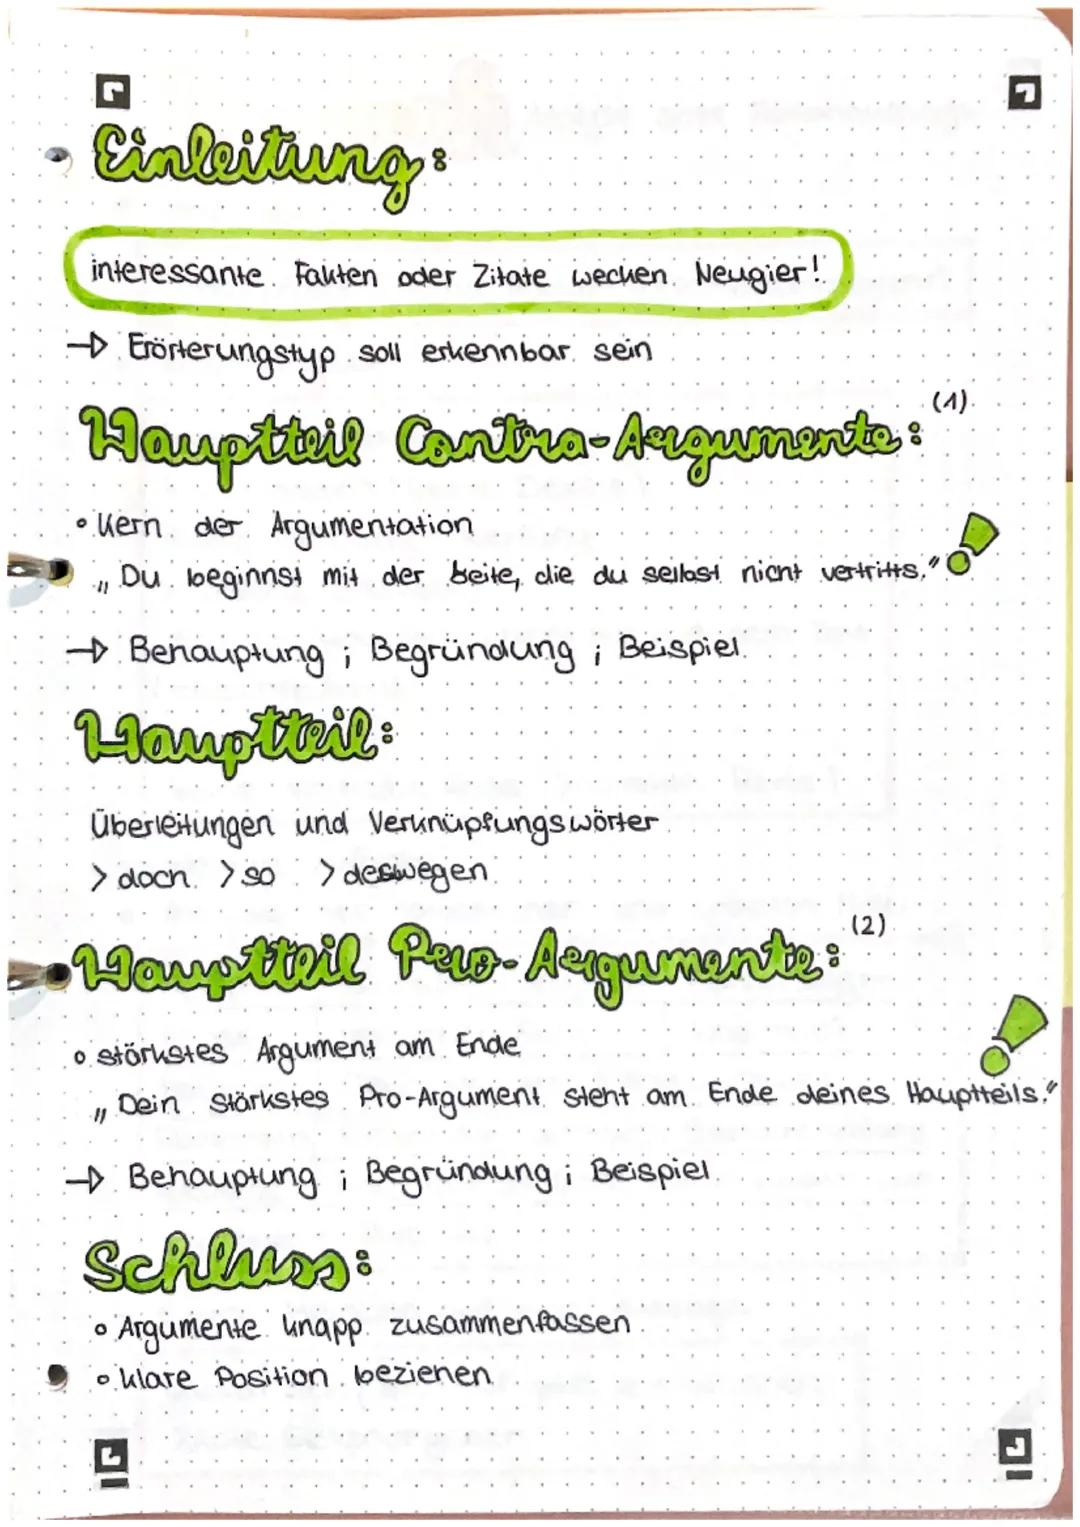 Einleitung:
interessante Fakten oder Zitate wecken Neugier!
→ Erörterungstyp soll erkennbar sein
Hauptteil Contra-Argumente: (1)
• Kern der Argumentation
„Du beginnst mit der Seite, die du selbst nicht vertritts."
→ Behauptung ; Begründung ; Beispiel
Hauptteil:
Überleitungen und Verknüpfungswörter
> doch > so > deswegen
Hauptteil Pro-Argumente: (2)
• störkstes Argument am Ende
„Dein stärkstes Pro-Argument steht am Ende deines Hauptteils."
→ Behauptung ; Begründung ; Beispiel
Schluss:
• Argumente knapp zusammenfassen
• klare Position beziehen